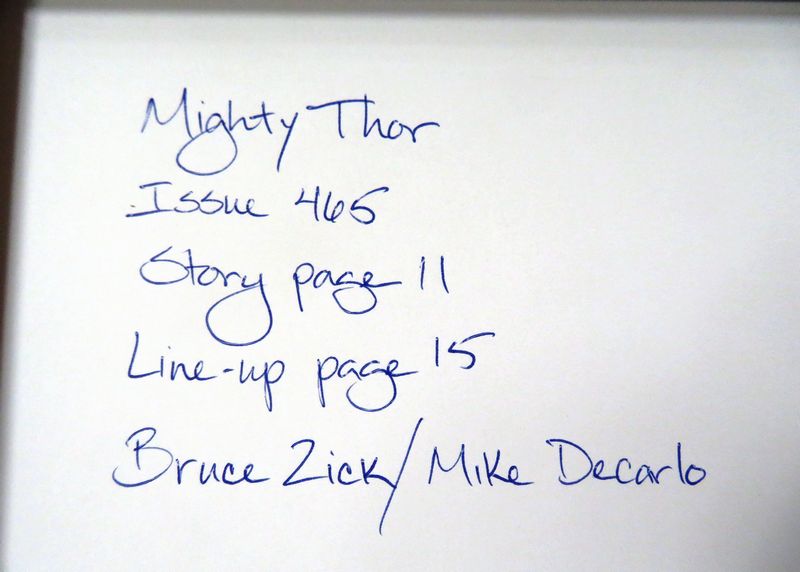 Mighty Thor
Issue 465
Story page 11
Line-up page 15
Bruce Zick/Mike Decarlo